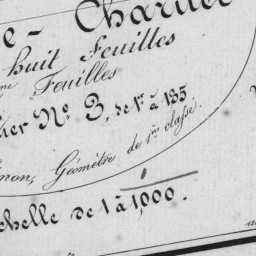 e - Chardet
huit Feuilles
me Feuilles
ier N° 3, de 1 à 135.
non, Géomètre de 1re classe.
chelle de 1 à 1000.